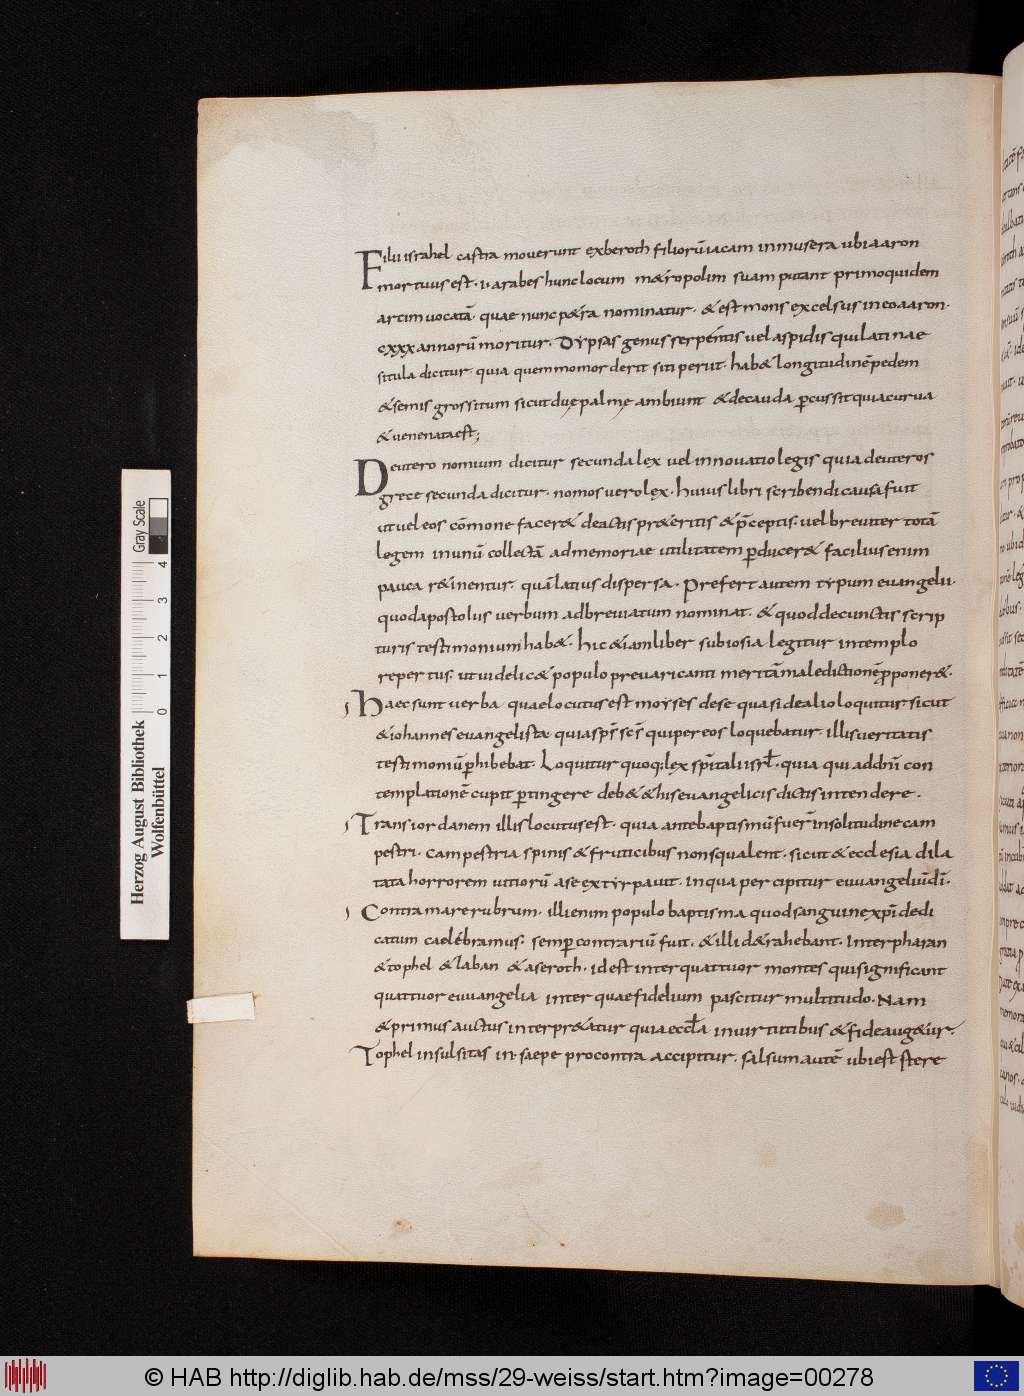 Filii israhel castra moverunt exberoth filiorū iacam inmusera ubiaaron
mortuus est · i· arabes hunc locum m&ropolim suam putant primo quidem
arcim vocatā · quae nunc p&ra nominatur · & est mons excelsus in eo aaron ·
cxxx annorū moritur · Dypsas genus serpentis vel aspidis qui latinae
situla dicitur · quia quem momorderit siti perit · hab& longitudinē pedem
& semis grossitum sicut duę palmę ambiunt & de cauda percussit quia curva
& venenata est;
Deuteronomium dicitur secunda lex vel innovatio legis quia deuteros
grece secunda dicitur · nomos vero lex · huius libri scribendi causa fuit
ut vel eos cōmonefacer& de actis pr&eritis & p̄ceptis · vel breviter totā
legem in unū collectā ad memoriae utilitatem perducer& facilius enim
pauca r&inentur · quā latius dispersa · Prefert autem typum evangelii ·
quod apostolus verbum adbreviatum nominat · & quod de cunctis scrip
turis testimonium hab& · hic & iam liber sub iosia legitur in templo
repertus · ut videlic& populo prevaricanti meritā maledictionē proponer& ·
Haec sunt verba quae locutus est moyses de se quasi de alio loquitur sicut
& iohannes evangelista quia sp̄s sc̄s qui per eos loquebatur · illis veritatis
testimoniū perhibebat · Loquitur quoq; lex sp̄italiisrl̄ · quia qui ad dn̄i con
templationē cupit pertingere deb& & his evangelicis dictis intendere ·
Trans iordanem illis locutus est · quia ante baptismū fuer̄ in solitudine cam
pestri · campestria spinis & fruticibus non squalent · sicut & ecclesia dila
tata horrorem vitiorū a se extyrpavit · in qua percipitur euuangeliū dī ·
Contra mare rubrum · illi enim populo baptisma quod sanguine xp̄i dedi
catum caelebramus · semper contrariū fuit · & illi d&rahebant · Inter pharan
& tophel & laban & aseroth · id est inter quattuor montes qui significant
quattuor euuangelia inter quae fidelium pascitur multitudo · Nam
& primus auctus interpr&atur quia eccl̄a in virtutibus & fide aug&ur ·
Tophel insulsitas in· saepe pro contra accipitur · salsum autē ubi est stere
Herzog August Bibliothek
Wolfenbüttel
0 1 2 3 4
Gray Scale
© HAB http://diglib.hab.de/mss/29-weiss/start.htm?image=00278